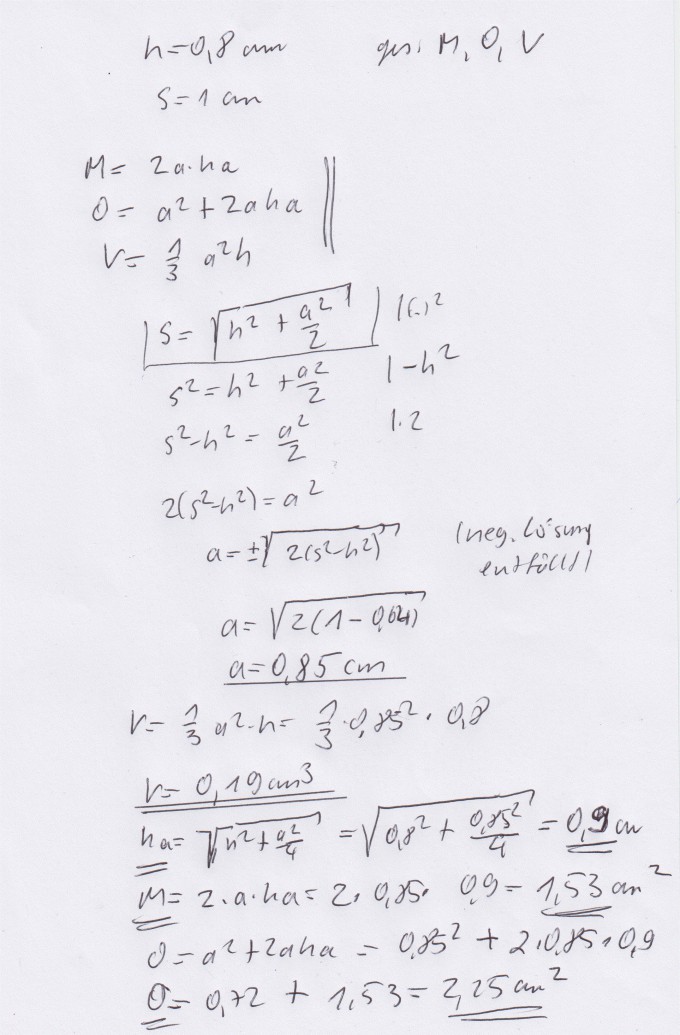 h=0,8 cm ges: M, O, V
s=1 cm
M= 2a·ha
O= a²+2aha
V= 1/3 a²h
s= √(h² + a²/2) |(..)²
s²=h² + a²/2 |-h²
s²-h² = a²/2 |·2
2(s²-h²)=a²
a=±√(2(s²-h²)) (neg. Lösung
entfällt)
a= √(2(1-0,64))
a=0,85 cm
V= 1/3 a²·h= 1/3·0,85²·0,8
V= 0,19cm³
ha= √(h²+a²/4) = √(0,8²+0,85²/4) = 0,9 cm
M= 2·a·ha= 2·0,85· 0,9= 1,53 cm²
O=a²+2aha = 0,85² + 2·0,85·0,9
O= 0,72 + 1,53= 2,25 cm²